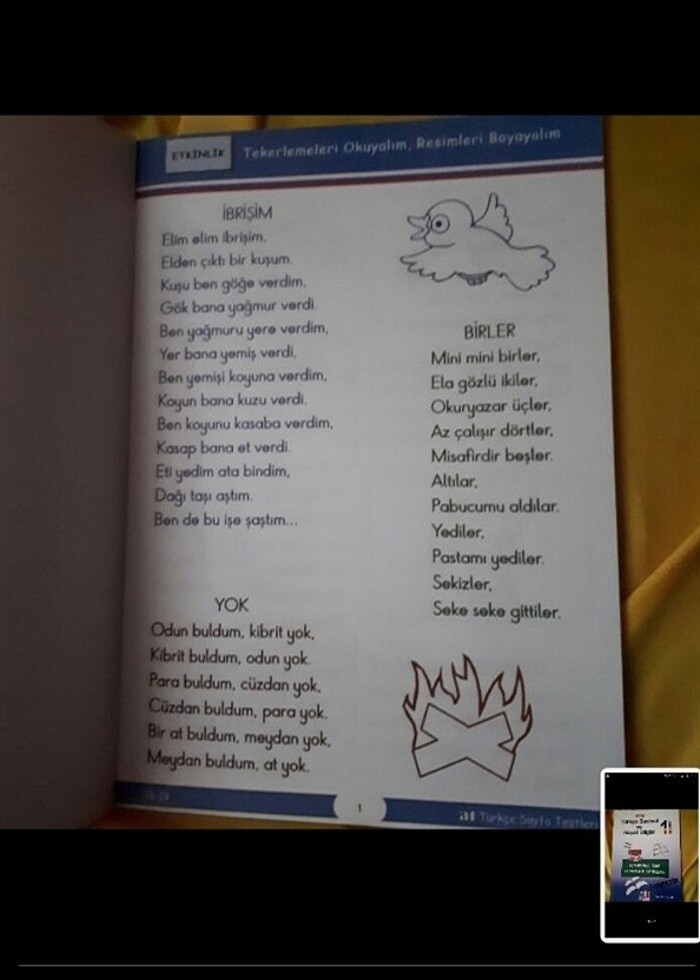 ETKİNLİK
Tekerlemeleri Okuyalım, Resimleri Boyayalım
İBRİŞİM
Elim elim ibrişim,
Elden çıktı bir kuşum.
Kuşu ben göğe verdim,
Gök bana yağmur verdi.
Ben yağmuru yere verdim,
Yer bana yemiş verdi,
Ben yemişi koyuna verdim,
Koyun bana kuzu verdi.
Ben koyunu kasaba verdim,
Kasap bana et verdi.
Eti yedim ata bindim,
Dağı taşı aştım.
Ben de bu işe şaştım...
YOK
Odun buldum, kibrit yok,
Kibrit buldum, odun yok.
Para buldum, cüzdan yok,
Cüzdan buldum, para yok.
Bir at buldum, meydan yok,
Meydan buldum, at yok.
BİRLER
Mini mini birler,
Ela gözlü ikiler,
Okuryazar üçler,
Az çalışır dörtler,
Misafirdir beşler.
Altılar,
Pabucumu aldılar.
Yediler,
Pastamı yediler.
Sekizler,
Seke seke gittiler.
1
Türkçe Sayfa Testleri